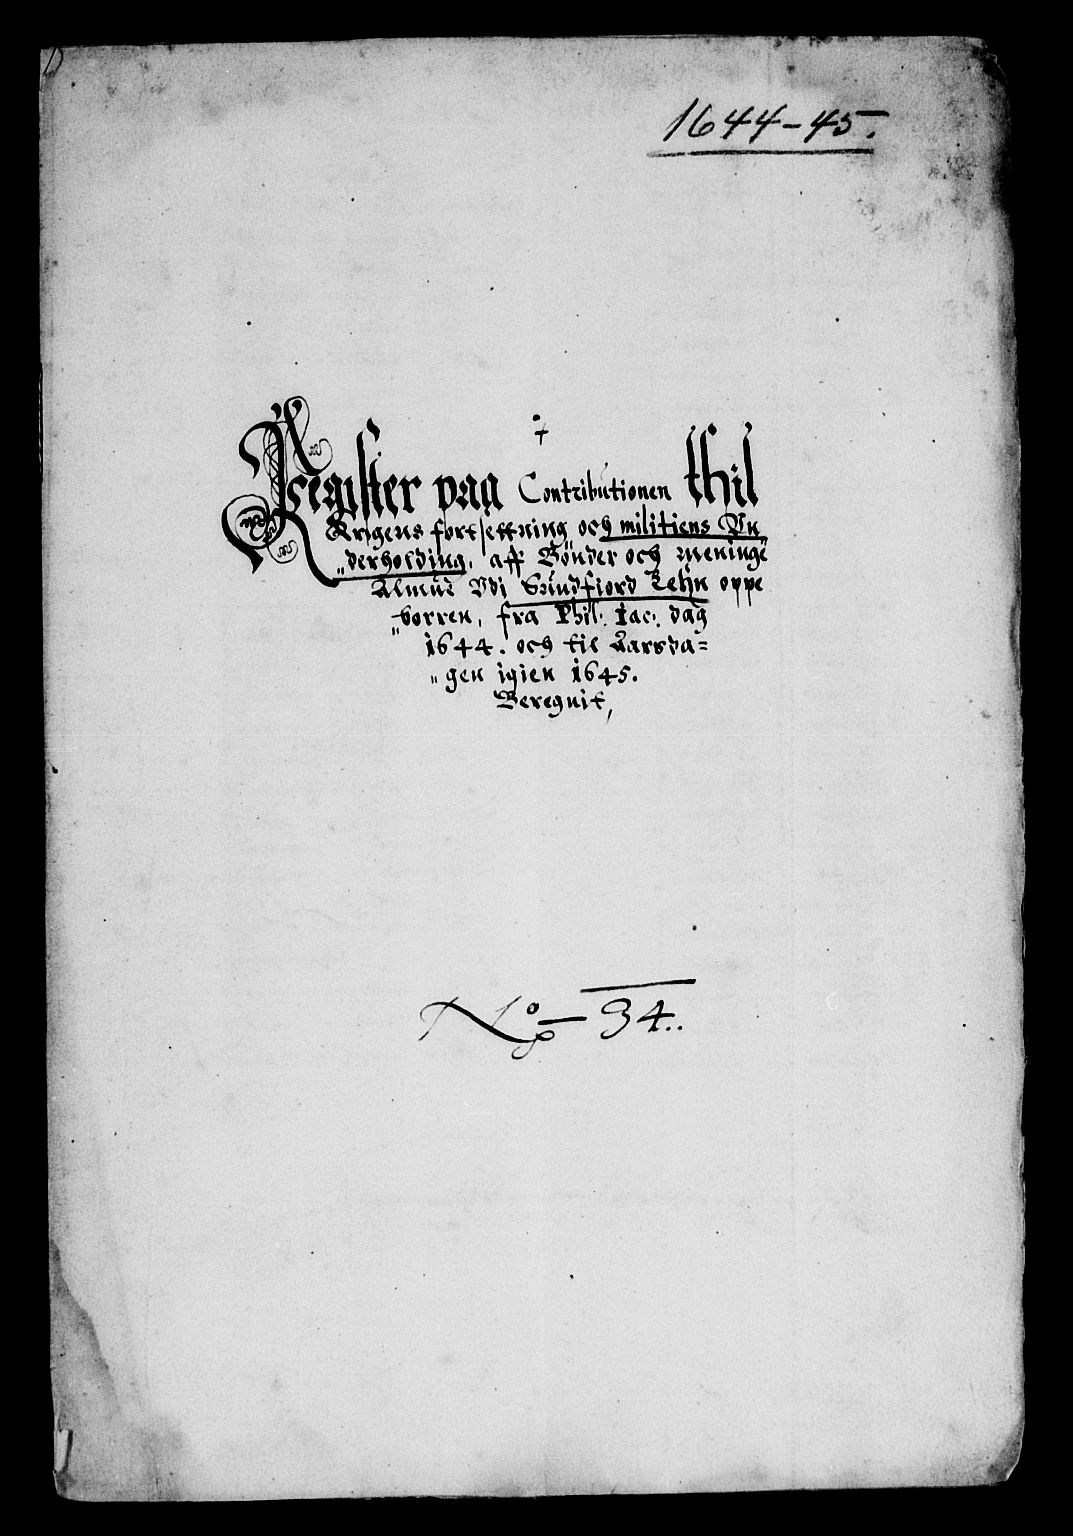 1644-45.
Register paa Contributionen thil
Krigens fortsettning och militiens Un
„derholding, aff Bönder och meninge
Almue Udj Sundfiord Lehn oppe
„borren, fra Phil: Jac: dag
1644. och til Aarsda=
„gen igien 1645.
Beregnit,
No 34..